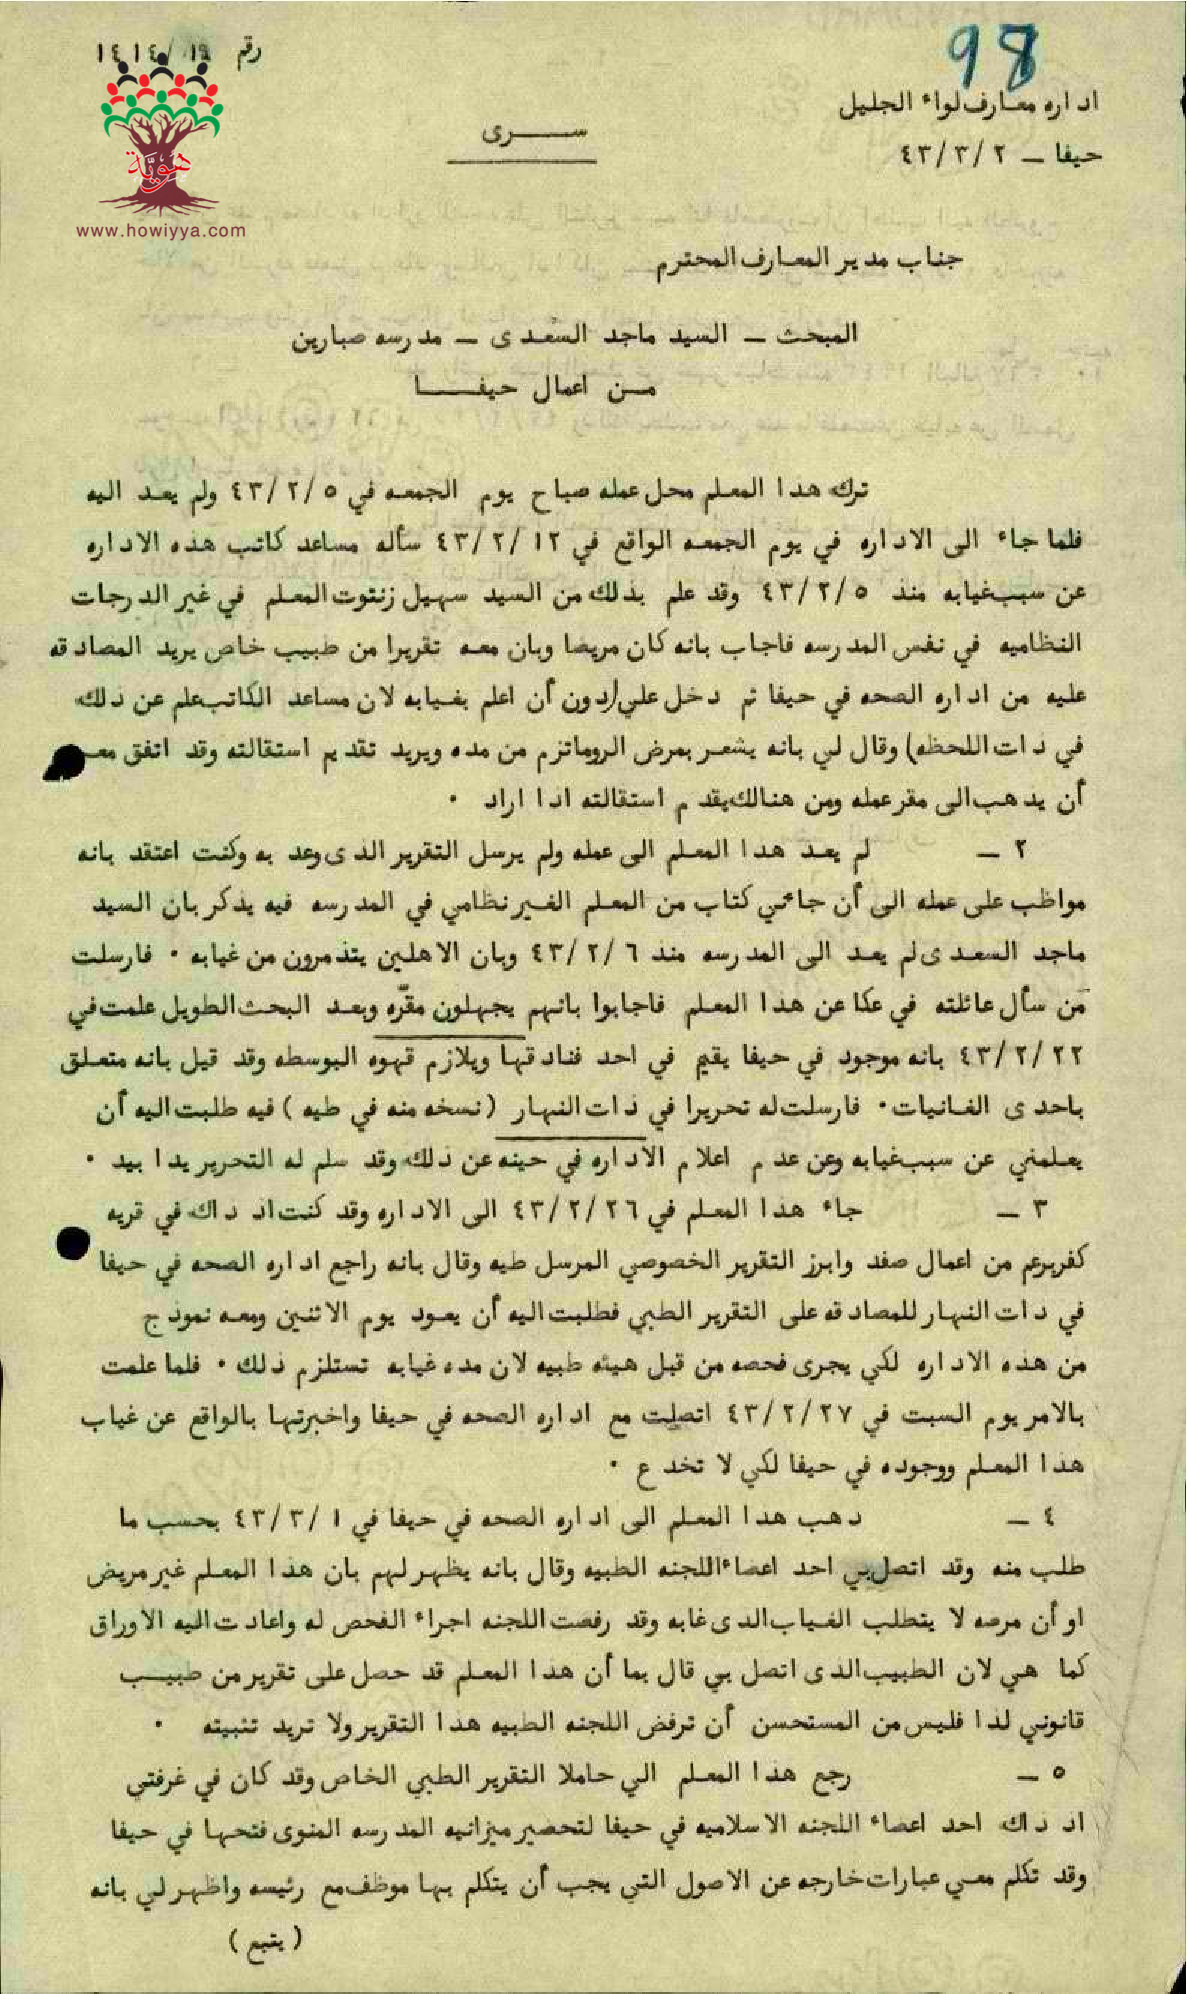 98
رقم ١٩/ ١٤١٤
اداره معارف لواء الجليل
سرى
حيفا - ٤٣/٣/٢
هوية
www.howiyya.com
جناب مدير المعارف المحترم
المبحث - السيد ماجد السعدى - مدرسه صبارين
من اعمال حيفا
ترك هذا المعلم محل عمله صباح يوم الجمعه في ٤٣/٢/٥ ولم يعد اليه
فلما جاء الى الاداره في يوم الجمعه الواقع في ٤٣/٢/١٢ سأله مساعد كاتب هذه الاداره
عن سبب غيابه منذ ٤٣/٢/٥ وقد علم بذلك من السيد سهيل زنتوت المعلم في غير الدرجات
النظاميه في نفس المدرسه فاجاب بانه كان مريضا وبان معه تقريرا من طبيب خاص يريد المصادقه
عليه من اداره الصحه في حيفا ثم دخل علي (دون أن اعلم بغيابه لان مساعد الكاتب علم عن ذلك
في ذات اللحظه) وقال لي بانه يشعر بمرض الروماتزم من مده ويريد تقديم استقالته وقد اتفق معـ
أن يذهب الى مقر عمله ومن هنالك يقدم استقالته اذا اراد ٠
٢ - لم يعد هذا المعلم الى عمله ولم يرسل التقرير الذى وعد به وكنت اعتقد بانه
مواظب على عمله الى أن جاءني كتاب من المعلم الغير نظامي في المدرسه فيه يذكر بان السيد
ماجد السعدى لم يعد الى المدرسه منذ ٤٣/٢/٦ وبان الاهلين يتذمرون من غيابه ٠ فارسلت
من سأل عائلته في عكا عن هذا المعلم فاجابوا بانهم يجهلون مقرّه وبعد البحث الطويل علمت في
٤٣/٢/٢٢ بانه موجود في حيفا يقيم في احد فنادقها ويلازم قهوه البوسطه وقد قيل بانه متعلق
باحدى الغانيات ٠ فارسلت له تحريرا في ذات النهار (نسخه منه في طيه) فيه طلبت اليه أن
يعلمني عن سبب غيابه وعن عدم اعلام الاداره في حينه عن ذلك وقد سلم له التحرير يدا بيد ٠
٣ - جاء هذا المعلم في ٤٣/٢/٢٦ الى الاداره وقد كنت اذ ذاك في قريه
كفربرعم من اعمال صفد وابرز التقرير الخصوصي المرسل طيه وقال بانه راجع اداره الصحه في حيفا
في ذات النهار للمصادقه على التقرير الطبي فطلبت اليه أن يعود يوم الاثنين ومعه نموذج
من هذه الاداره لكي يجرى فحصه من قبل هيئه طبيه لان مده غيابه تستلزم ذلك ٠ فلما علمت
بالامر يوم السبت في ٤٣/٢/٢٧ اتصلت مع اداره الصحه في حيفا واخبرتها بالواقع عن غياب
هذا المعلم ووجوده في حيفا لكي لا تخدع ٠
٤ - ذهب هذا المعلم الى اداره الصحه في حيفا في ٤٣/٣/١ بحسب ما
طلب منه وقد اتصل بي احد اعضاء اللجنه الطبيه وقال بانه يظهر لهم بان هذا المعلم غير مريض
او أن مرضه لا يتطلب الغياب الذى غابه وقد رفضت اللجنه اجراء الفحص له واعادت اليه الاوراق
كما هي لان الطبيب الذى اتصل بي قال بما أن هذا المعلم قد حصل على تقرير من طبيب
قانوني لذا فليس من المستحسن أن ترفض اللجنه الطبيه هذا التقرير ولا تريد تثبيته ٠
٥ - رجع هذا المعلم الي حاملا التقرير الطبي الخاص وقد كان في غرفتي
اذ ذاك احد اعضاء اللجنه الاسلاميه في حيفا لتحضير ميزانيه المدرسه المنوى فتحها في حيفا
وقد تكلم معي عبارات خارجه عن الاصول التي يجب أن يتكلم بها موظف مع رئيسه واظهر لي بانه
(يتبع)